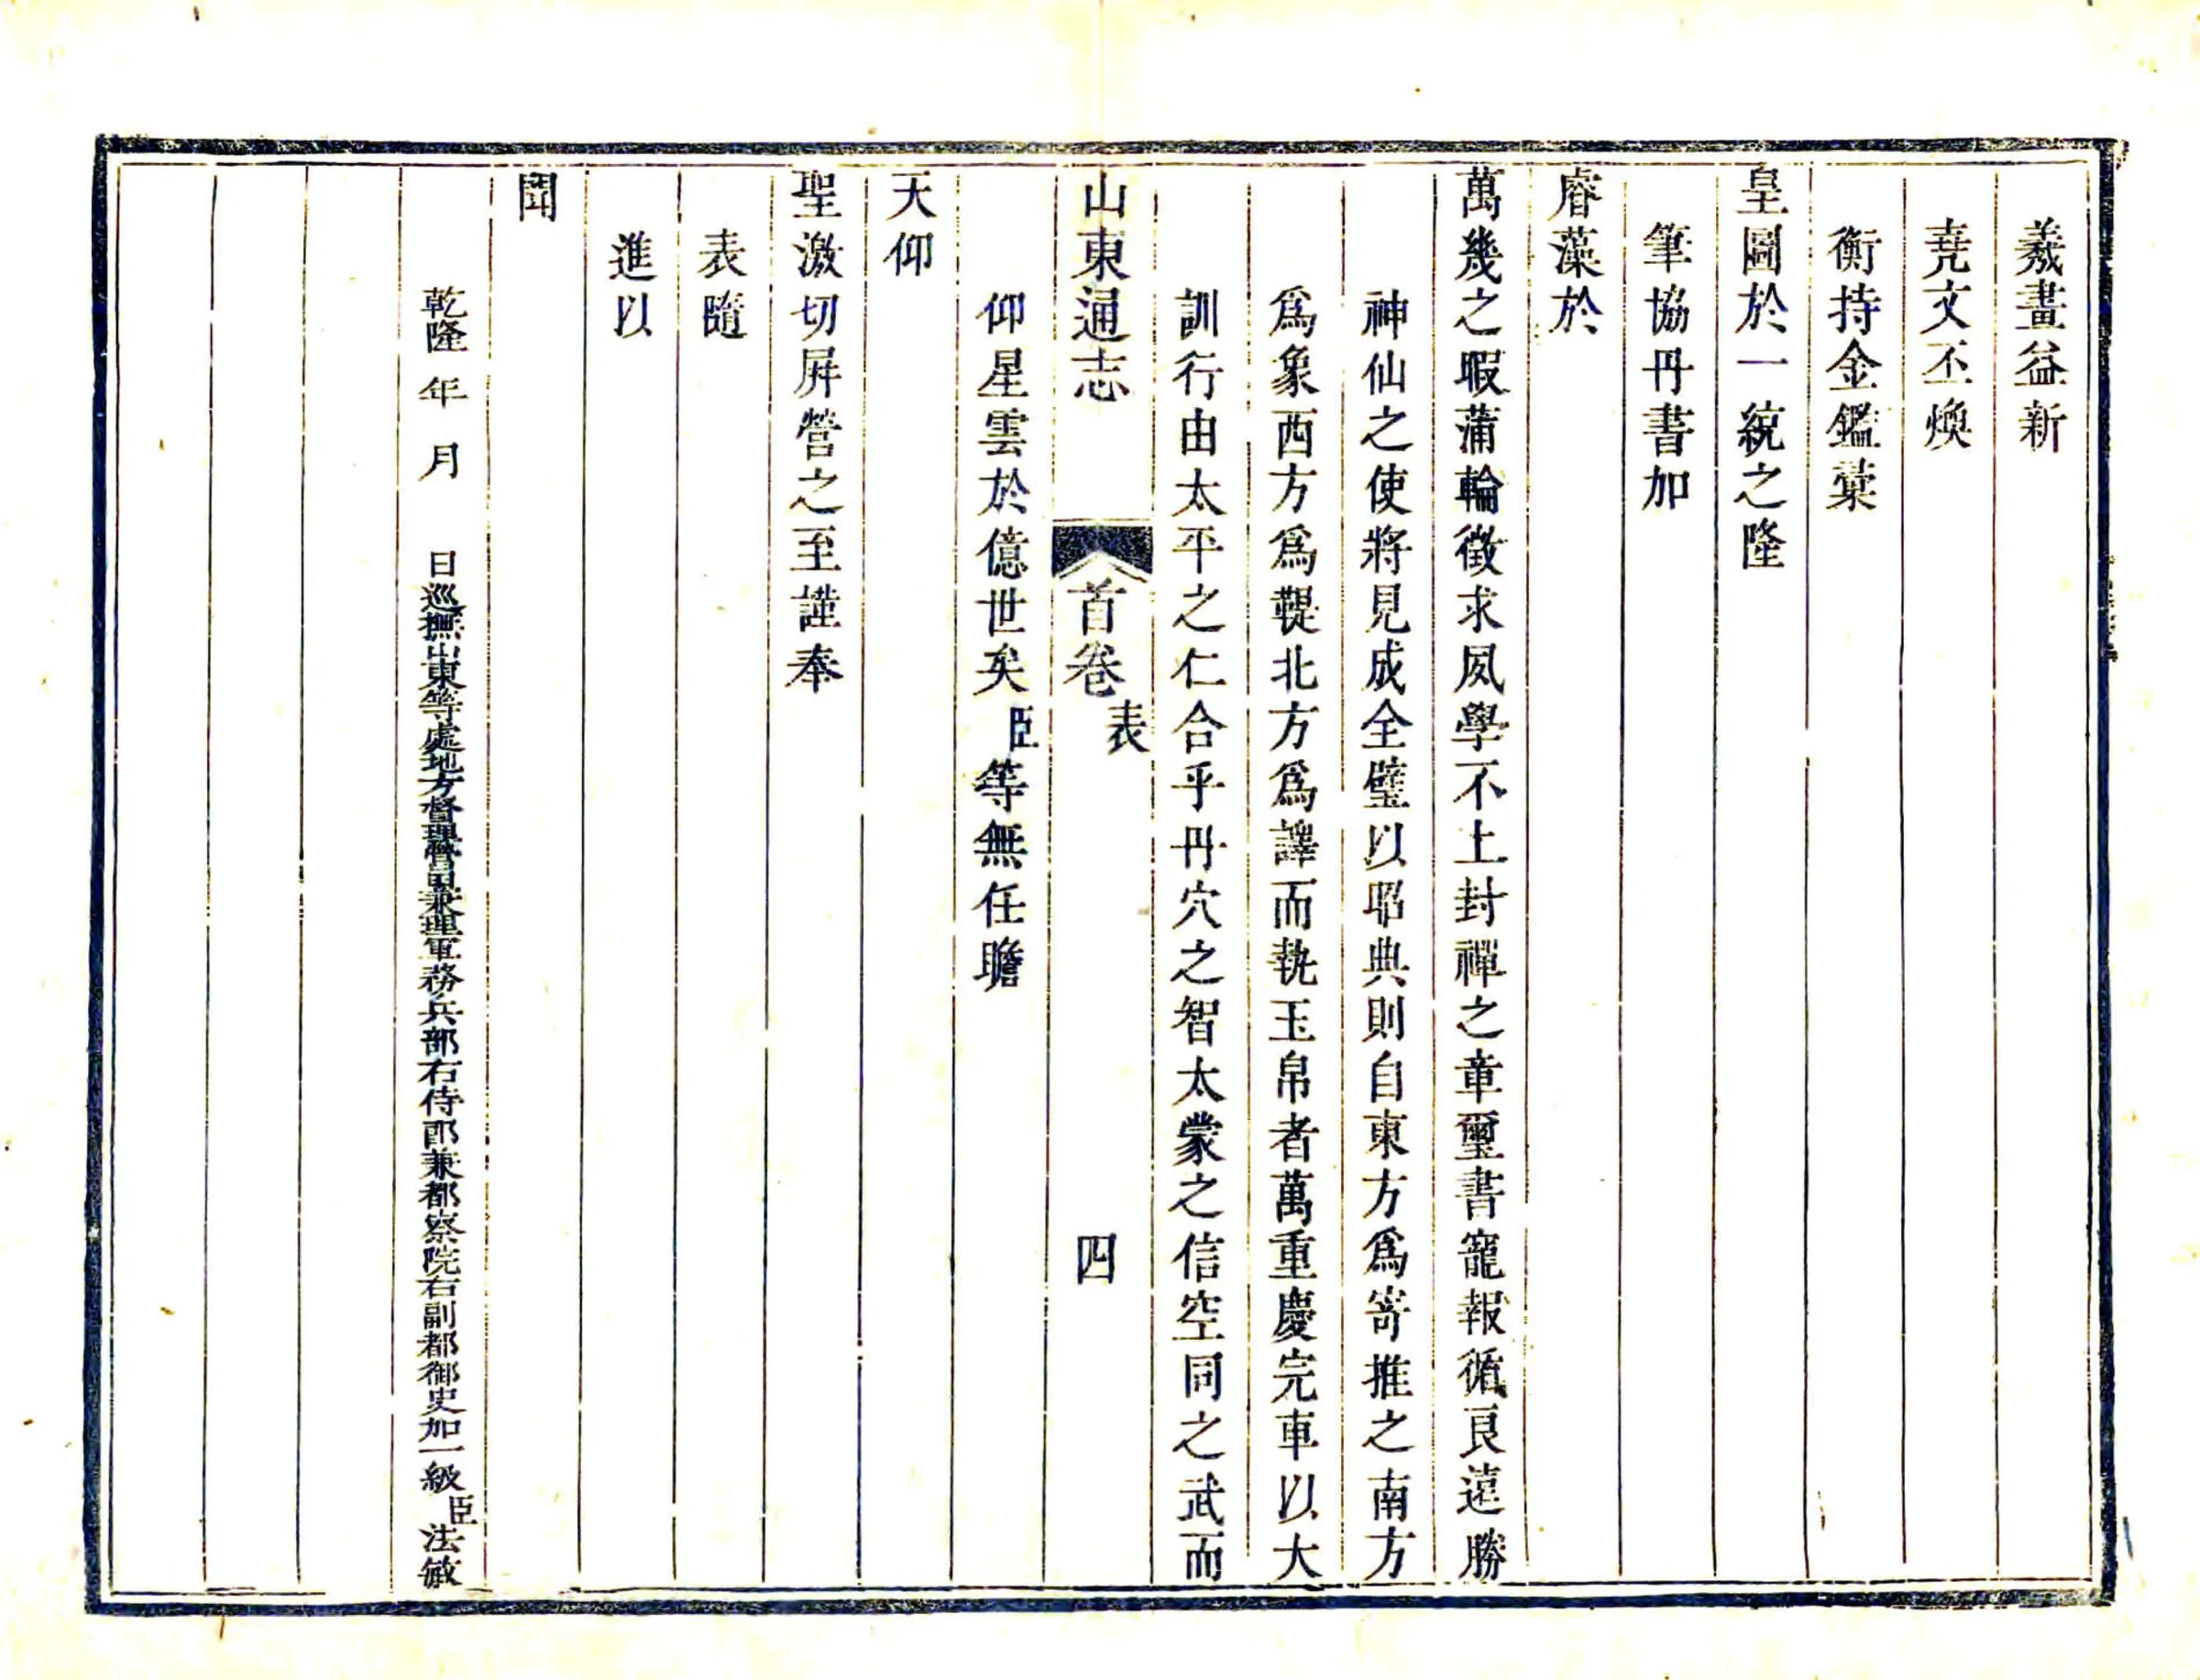 羲畫益新
堯文丕煥
衡持金鑑彙
皇圖於一統之隆
筆協丹書加
睿藻於
萬幾之暇蒲輪徵求夙學不上封禪之章璽書寵報循良遠勝
神仙之使將見成全璧以昭典則自東方為寄推之南方
為象西方為鞮北方為譯而執玉帛者萬重慶完車以大
訓行由太平之仁合乎丹穴之智太蒙之信空同之武而
山東通志 首卷 表 四
仰星雲於億世矣臣等無任瞻
天仰
聖激切屏營之至謹奉
表隨
進以
聞
乾隆 年 月 日巡撫山東等處地方督理營田兼理軍務兵部右侍郎兼都察院右副都御史加一級臣法敏